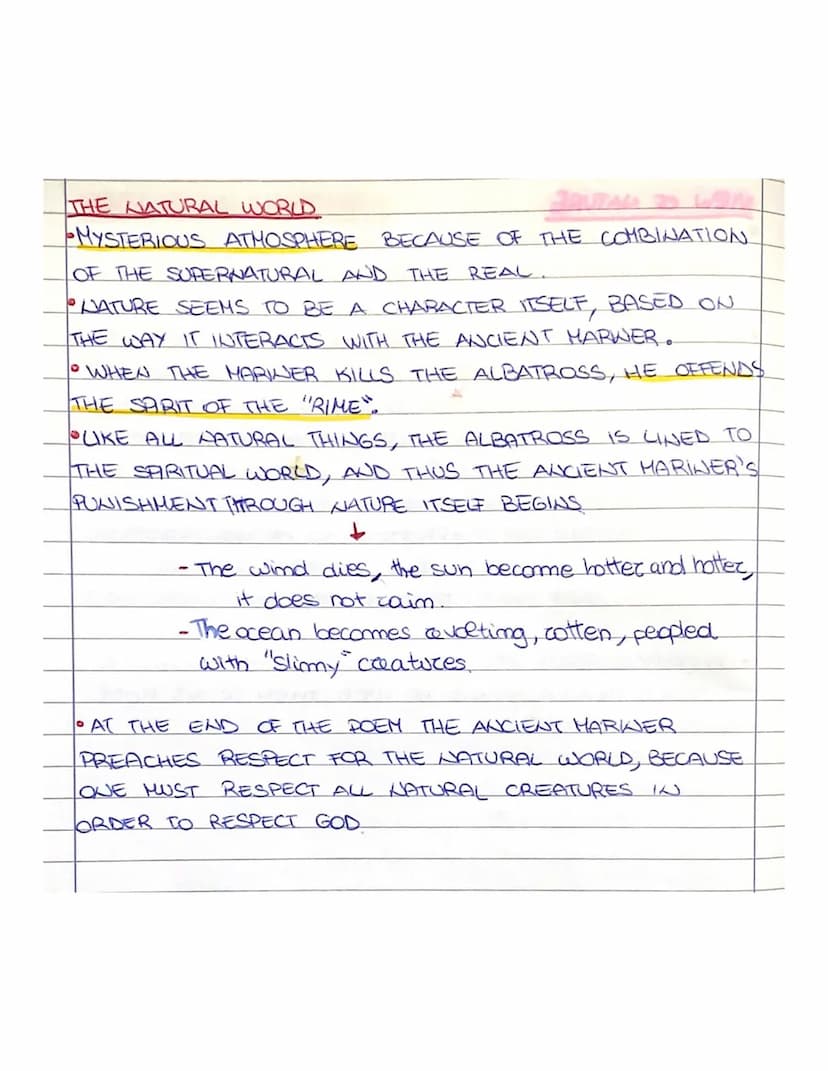 THE NATURAL WORLD
•MYSTERIOUS ATMOSPHERE BECAUSE OF THE COMBINATION
OF THE SUPERNATURAL AND THE REAL.
•NATURE SEEMS TO BE A CHARACTER ITSELF, BASED ON
THE WAY IT INTERACTS WITH THE ANCIENT MARINER.
• WHEN THE MARINER KILLS THE ALBATROSS, HE OFFENDS
THE SPIRIT OF THE "RIME".
•LIKE ALL NATURAL THINGS, THE ALBATROSS IS LINED TO
THE SPIRITUAL WORLD, AND THUS THE ANCIENT MARINER'S
PUNISHMENT THROUGH NATURE ITSELF BEGINS
↓
- The wind dies, the sun become hotter and hotter,
it does not rain.
- The ocean becomes revolting, rotten, peopled
with "slimy" creatures.
• AT THE END OF THE POEM THE ANCIENT MARINER
PREACHES RESPECT FOR THE NATURAL WORLD, BECAUSE
ONE MUST RESPECT ALL NATURAL CREATURES IN
ORDER TO RESPECT GOD.